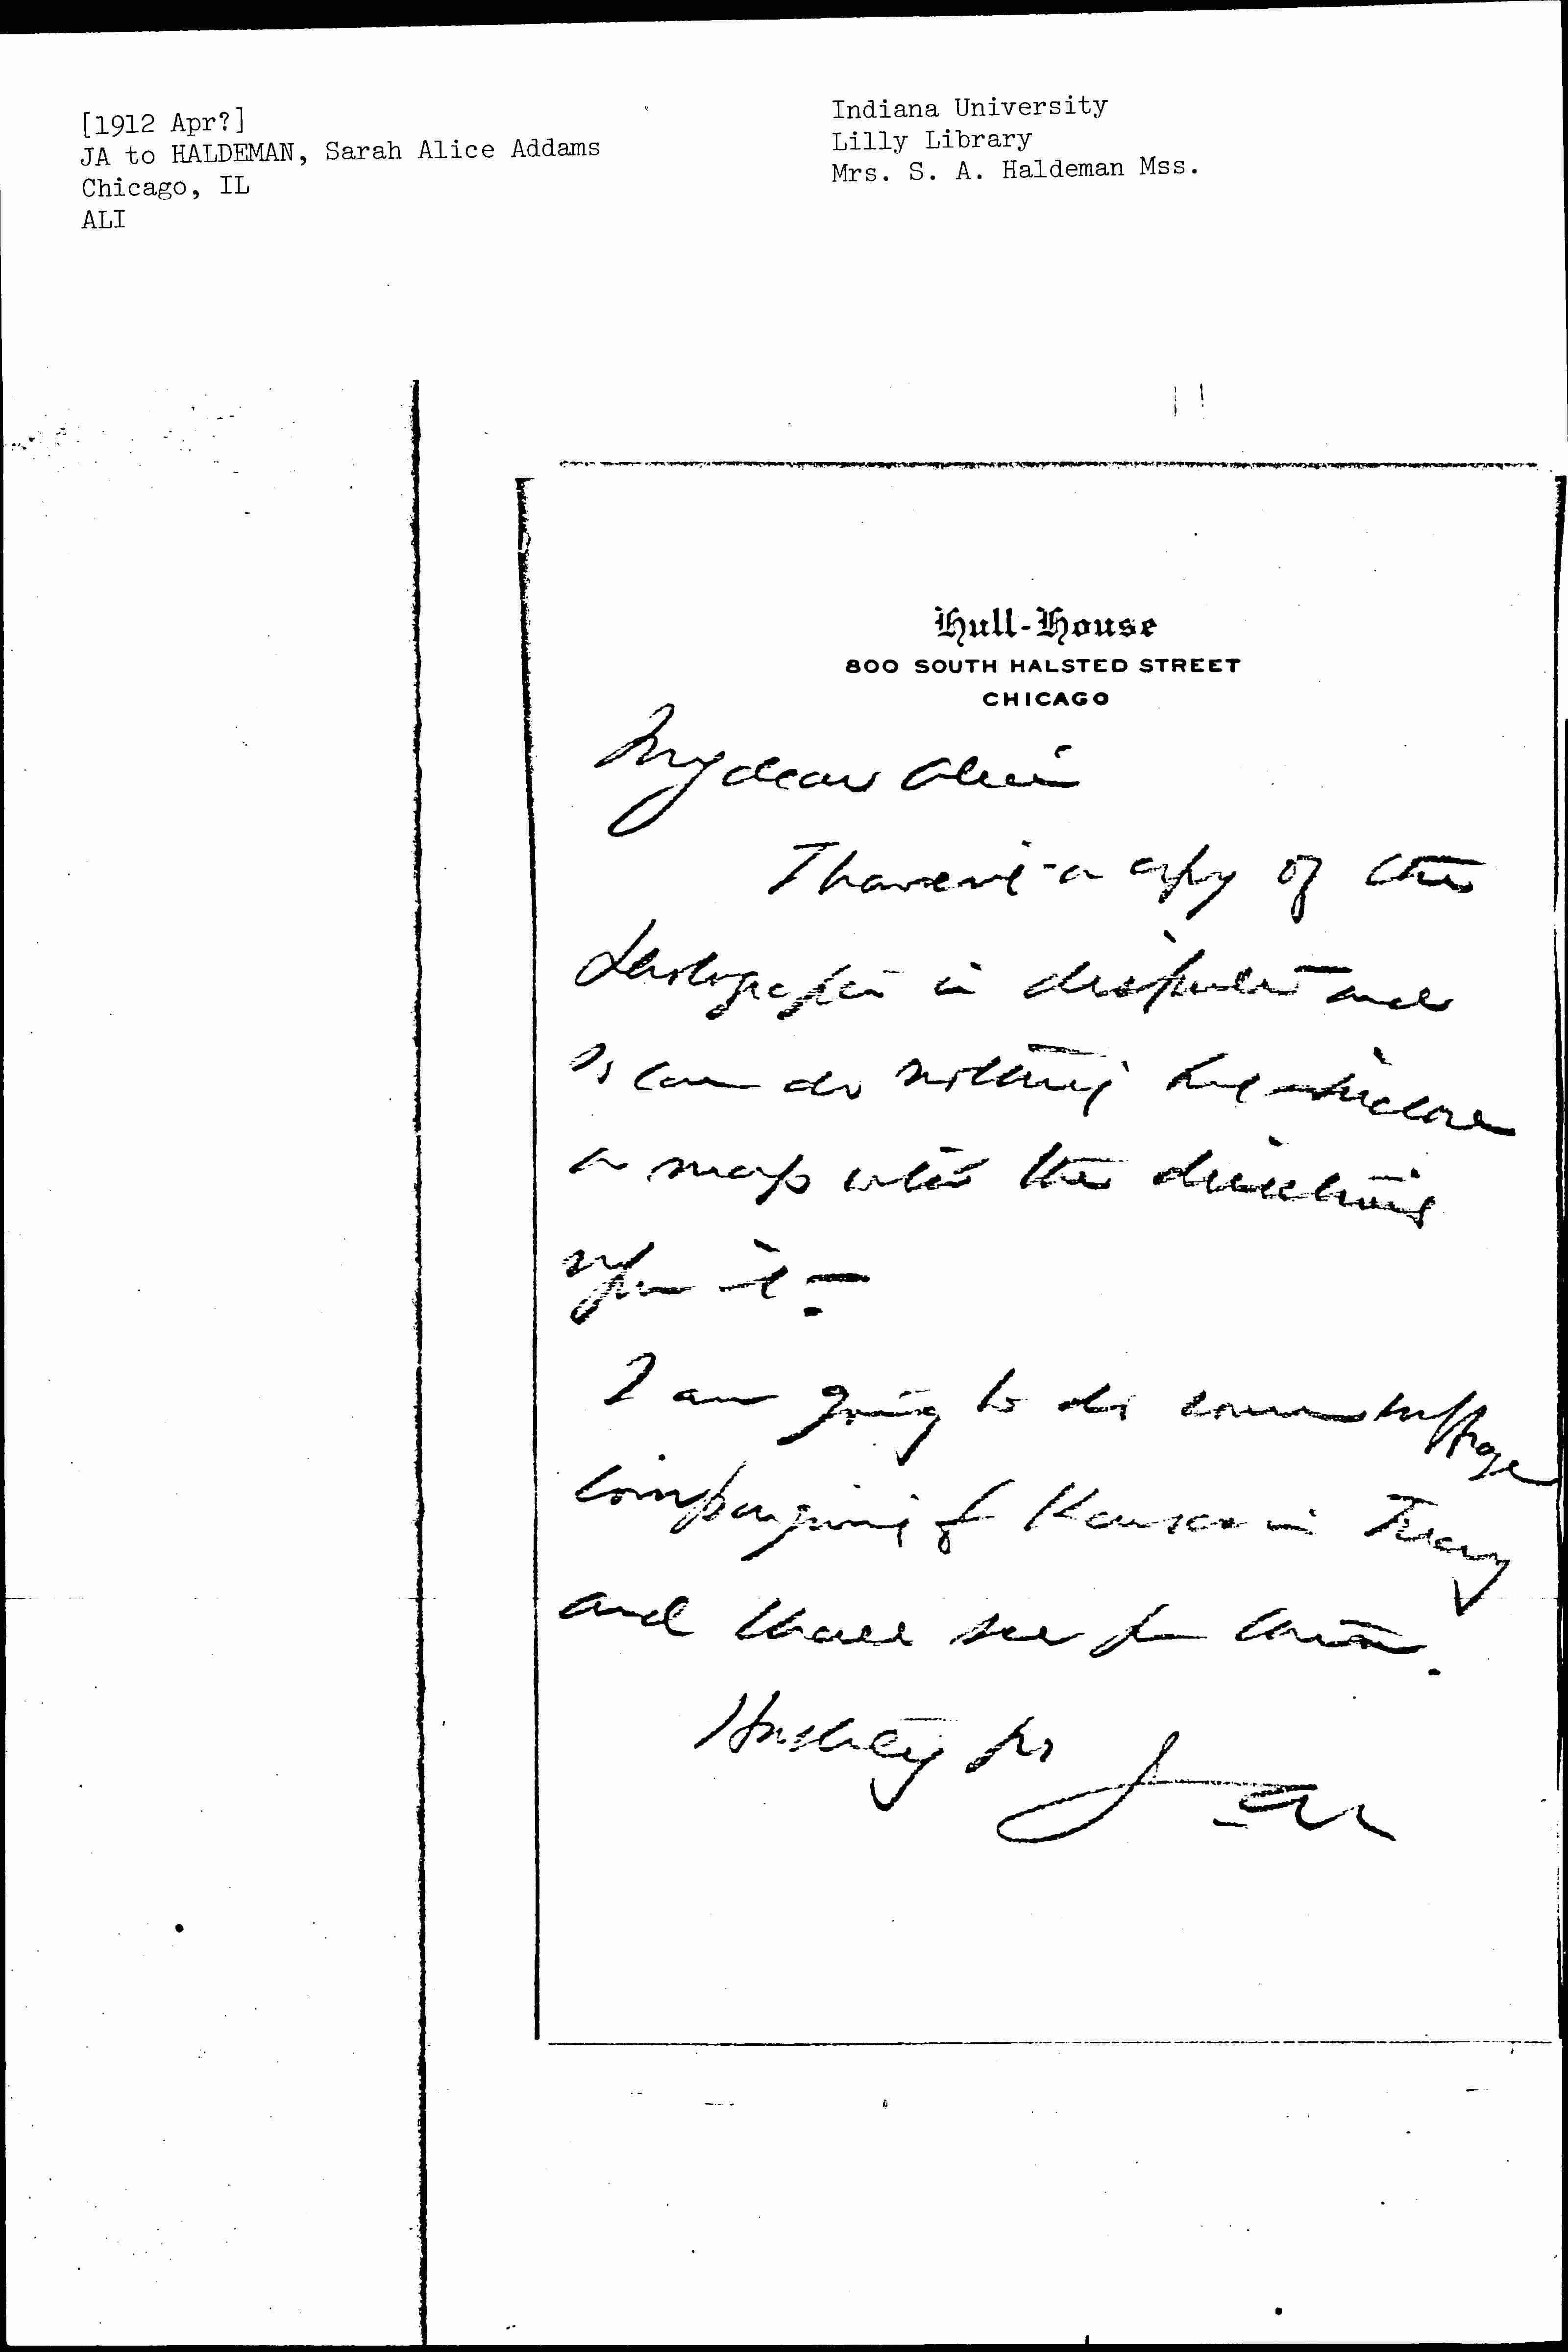 [1912 Apr?]
JA to HALDEMAN, Sarah Alice Addams
Chicago, IL
ALI
Indiana University
Lilly Library
Mrs. S. A. Haldeman Mss.
Hull-House
800 SOUTH HALSTED STREET
CHICAGO
My dear Alice
I haven't a copy of the
in dispute and
so can do nothing but enclose
a map with the directions
upon it —
I am going to do some suffrage
campaigning of Kansas in
and shall see
Hastily yrs
Jane